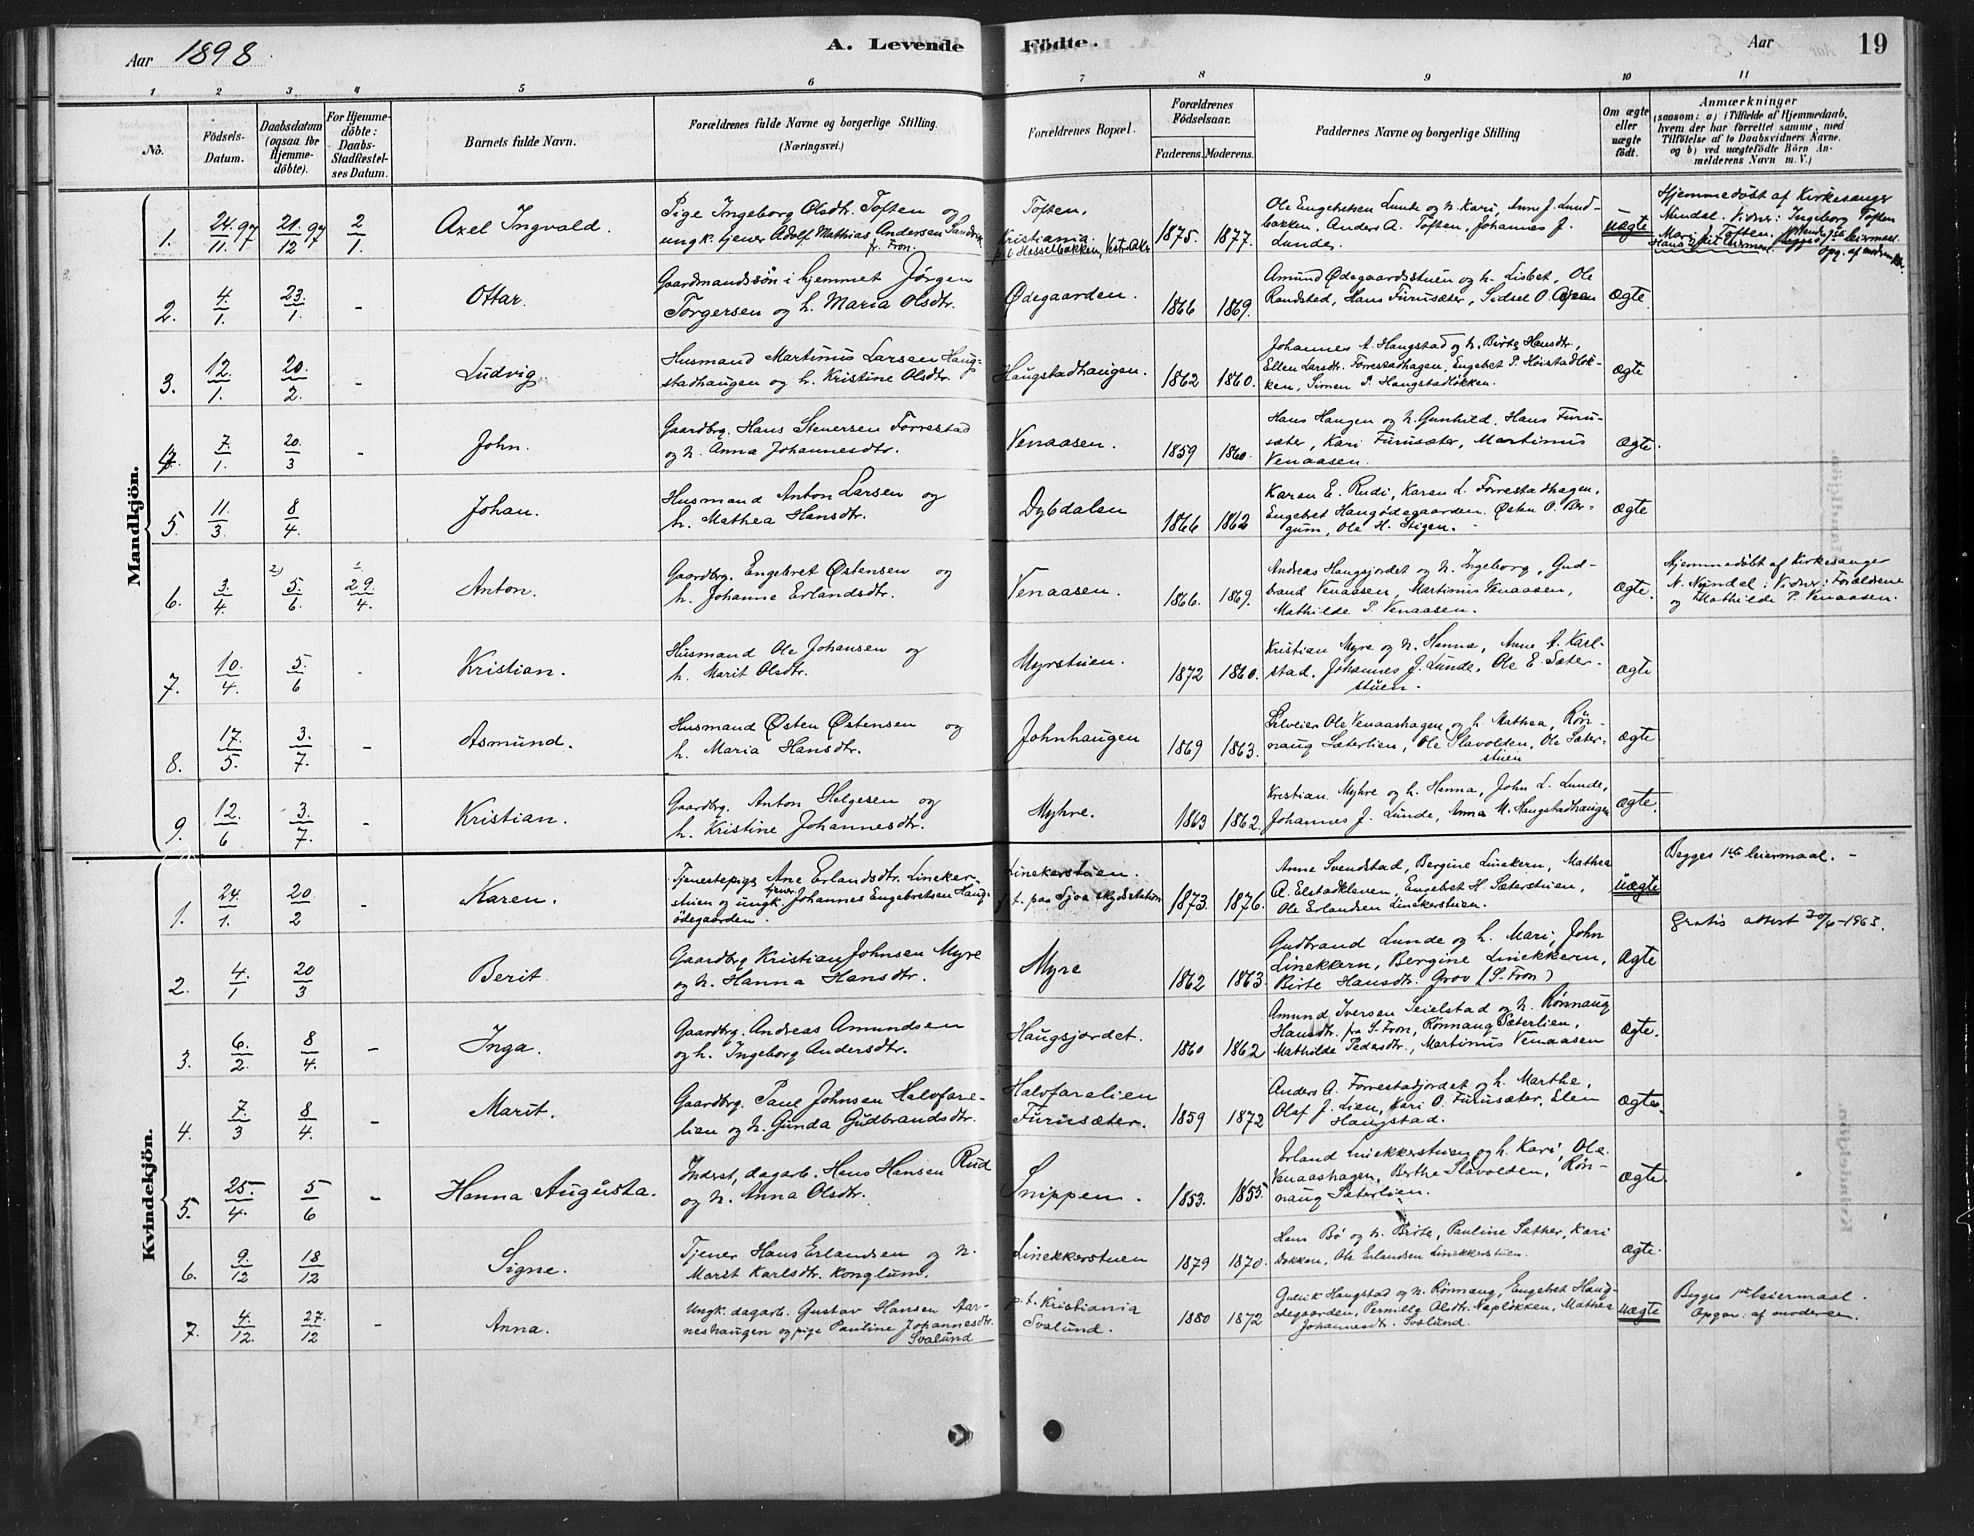 Aar 1898.
A. Levende Födte.
Aar
19
1 2 3 4 5 6 7 8 9 10 11
No.
Födsels-Datum.
Daabsdatum (ogsaa for Hjemme-döbte).
For Hjemme-döbte: Daabs-Stadfæstel-ses Datum.
Barnets fulde Navn.
Forældrenes fulde Navne og borgerlige Stilling. (Næringsvei.)
Forældrenes Bopæl.
Forældrenes Födselsaar.
Faderens. Moderens.
Faddernes Navne og borgerlige Stilling
Om ægte eller uægte födt.
Anmærkninger
(saasom: a) i Tilfælde af Hjemmedaab,
hvem der har forrettet samme, med
Tilföielse af to Daabsvidners Navne,
og b) ved uægtefödte Börn An-
melderens Navn m. V.)
Mandkjön.
1. 24.97/11. 21.97/12 2/1. Axel Ingvald.
Pige Ingeborg Olsdtr. Toften og
ungk. tjener Adolf Mathias Andersen Sandvik
fr. Fron.
Toften,
Kristiania.
p. t. Hasselbakken, Vestre Aker
1875. 1877.
Ole Engebretsen Lunde og h. Kari, Anne J. Lund-
bakken, Anders A. Toften, Johannes J.
Lunde.
uægte
Hjemmedöbt af Kirkesanger
Nyndal. Vidner: Ingeborg Toften
Mari J. Toften.
Opg. af moderen
2. 4./1. 23./1. - Ottar.
Gaardmandssön i hjemmet Jörgen
Torgersen og h. Maria Olsdtr.
Ødegaarden.
1866 1869.
Amund Ødegaardsstuen og h. Lisbet, Ole
Randstad, Hans Furusæter, Sidsel O.
ægte.
3. 12./1. 20./2. - Ludvig.
Husmand Martinus Larsen Haug-
stadhaugen og h. Kristine Olsdtr.
Haugstadhaugen.
1862 1860.
Johannes A. Haugstad og h. Birte Hansdtr.,
Ellen Larsdtr. Forrestadhagen, Engebret P. Høistadløk-
ken, Simen P. Haugstadløkken.
ægte
4. 7./1. 20./3 - John.
Gaardbrg. Hans Stenersen Forrestad
og h. Anna Johannesdtr.
Venaasen.
1859 1860.
Hans Haugen og h. Gunhild, Hans Furu-
sæter, Kari Furusæter, Martinus
Venaasen.
ægte.
5. 11./3. 8/4. - Johan.
Husmand Anton Larsen og
h. Mathea Hansdtr.
Dybdalen
1866 1862
Karen E. Rudi, Karen L. Forrestadhagen,
Engebret Haugødegaarden. Østen O. Ber-
gum, Ole H. Stigen.
ægte
6. 3./4. 2) 5/6. 1 29./4. Anton.
Gaardbrg. Engebret Østensen og
h. Johanne Erlandsdtr.
Venaasen.
1866. 1869.
Andreas Haugsjordet og h. Ingeborg, Gud-
brand Venaasen, Martinus Venaasen,
Mathilde P. Venaasen.
ægte.
Hjemmedöbt af Kirkesanger
N. Nyndal: Vidner: Forældrene
og Mathilde P. Venaasen.
7. 10./4. 5./6 - Kristian.
Husmand Ole Johansen og
h. Marit Olsdtr.
Myrstuen.
1872 1860.
Kristian Myre og h. Hanna, Anne A. Karl-
stad, Johannes J. Lunde, Ole E. Sæter-
stuen.
ægte
8. 17./5. 3./7. - Asmund.
Husmand Østen Østensen og
h. Maria Hansdtr.
Johnhaugen
1869 1863.
Selveier Ole Venaashagen og h. Mathea, Røn-
naug Sæterlien, Ole Slavolden, Ole Sæter-
stuen
ægte
9. 12./6 3./7. - Kristian.
Gaardbrg. Anton Helgesen og
h. Kristine Johannesdtr.
Myhre.
1863 1862.
Kristian Myhre og h. Hanna, John L. Lunde,
Johannes J. Lunde, Anna M. Haugstadhaugen
ægte.
Kvindekjön.
1. 24./1. 20/2 - Karen.
Tjenestepige Ane Erlandsdtr. Lineker-
stuen og ungk. tjener Johannes Engebretsen Haug-
ødegaarden.
Linekerstuen.
p. t. paa Sjoa skydsstation
1873. 1876.
Anne Svendstad, Bergine Linekern, Mathea
A. Elstadkleven, Engebret H. Sæterstuen,
Ole Erlandsen Linekerstuen.
uægte
Begges 1ste leiermaal. -
2. 4./1 20/3 Berit.
Gaardbrg. Kristian Johnsen Myre
og h. Hanna Hansdtr.
Myre
1862 1863.
Gudbrand Lunde og h. Mari, John
Linekkern, Bergine Linekkern,
Birte Hansdtr. Grov (S-Fron)
Ægte
Gratis attest 20/6-1963.
3. 6./2. 8/4. - Inga.
Gaardbrg. Andreas Amundsen
og h. Ingeborg Andersdtr.
Haugsjordet.
1860 1862
Amund Iversen Seielstad og h. Rønnaug
Hansdtr. fra S. Fron, Rønnaug Sæterlien,
Mathilde Pedersdtr., Martinus Venaasen
ægte.
4. 7./3 8/4. - Marit.
Gaardbrg. Paul Johnsen Halvfare-
lien og h. Gunda Gudbrandsdtr.
Halvfarelien
Furusæter.
1859 1872
Anders A. Forrestadjordet og h. Marthe,
Olaf J. Lien, Kari O. Furusæter, Elen
Haugstad.
ægte.
5. 25./4. 5/6 - Hanna Augusta.
Inderst, dagarb. Hans Hansen Rud
og h. Anna Olsdtr.
Snippen.
1853. 1855
Erland Linekkerstuen og h. Kari, Ole
Venaashagen, Berthe Slavolden, Røn-
naug Sæterlien.
ægte.
6. 9/12 18/12 Signe.
Tjener Hans Erlandsen og h.
Marit Karlsdtr. Konglum.
Linekkerstuen
1879 1870.
Hans Bø og h. Birte, Pauline Sæther, Kari
Bakken, Ole Erlandsen Linekkerstuen.
ægte.
7. 4./12. 27./12 - Anna.
Ungk. dagarb. Gustav Hansen Aar-
neshaugen og pige Pauline Johannesdtr.
Svalund
p. t. Kristiania
Svalund.
1880 1872
Gulrik Haugstad og h. Rønnaug, Engebret Haug-
ødegaarden, Pernille Olsdtr. Napløkken, Mathea
Johannesdtr. Svalund.
uægte
Begges 1ste leiermaal.
Opgav. af moderen.